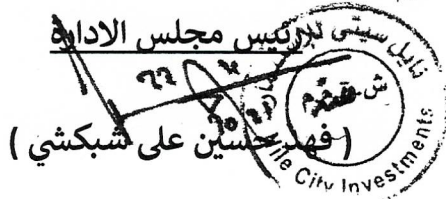 رئيس مجلس الادارة
( فهد حسين على شبكشي )
نايل سيتى للإستثمار
ش.م.م
Nile City Investments